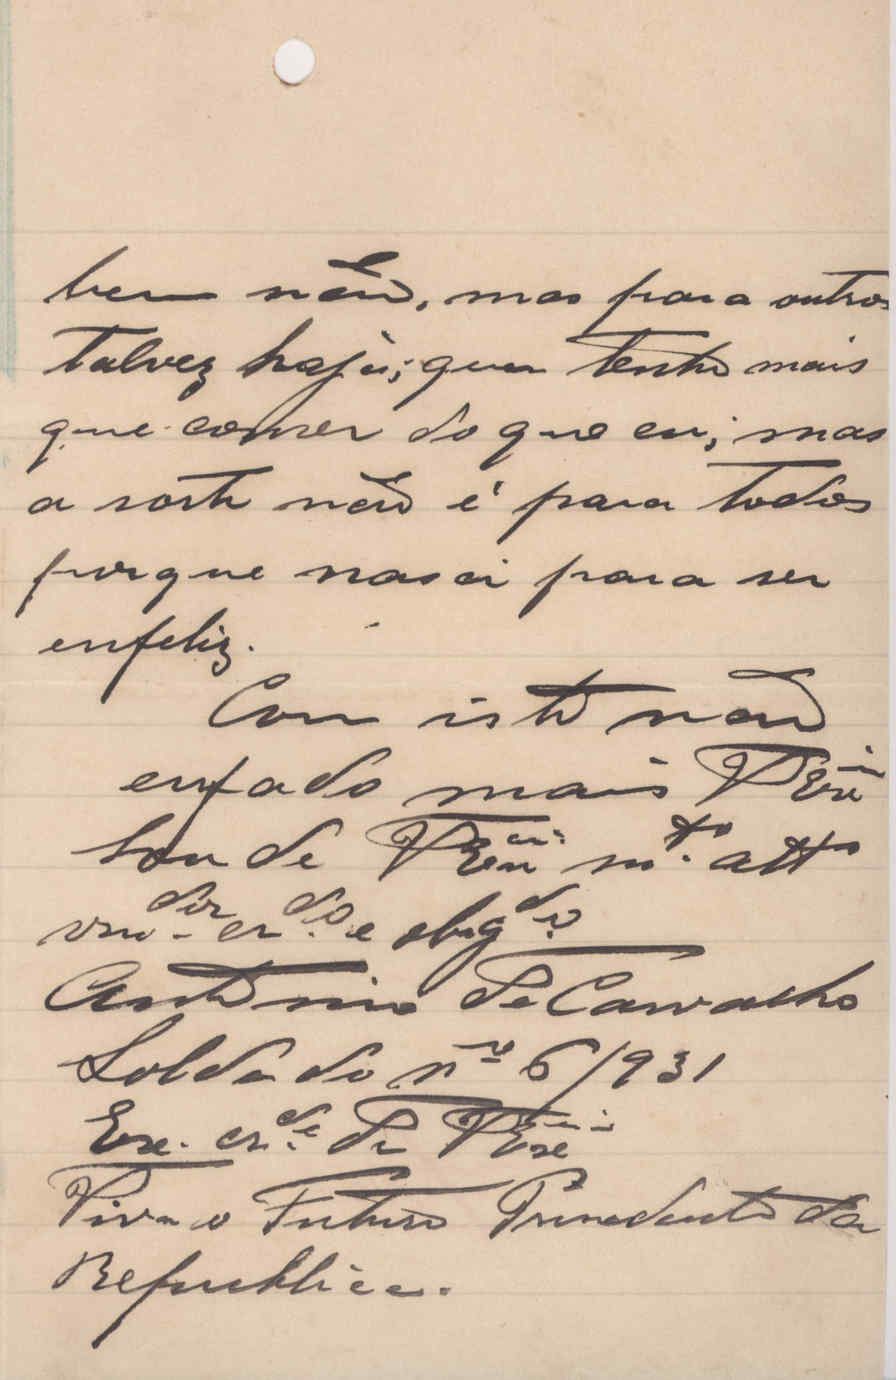 bem não, mas para outros
talvez hajà; quem tenho mais
que comer do que eu; mas
a sorte não é para todos
porque nasci para ser
enfeliz.
Com isto não
enfado mais VExcia
Sou de VExcia. mto. atto
vndor. crdo. e obrgdo.
Antonio de Carvalho
Soldado nº 6/931
Exe. crde. de VExcia
Viva o Futuro Prinedento da
Republica.